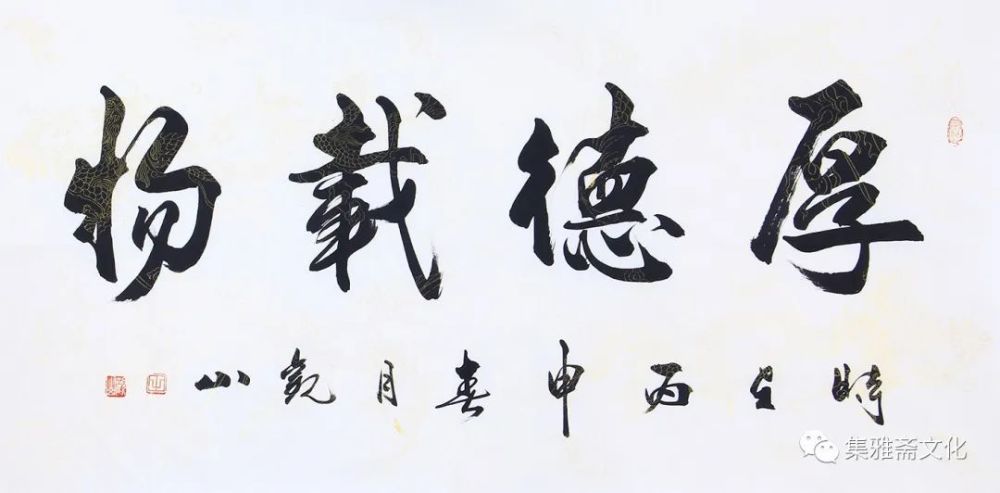 厚德載物
時在丙申春月觀山
集雅斋文化